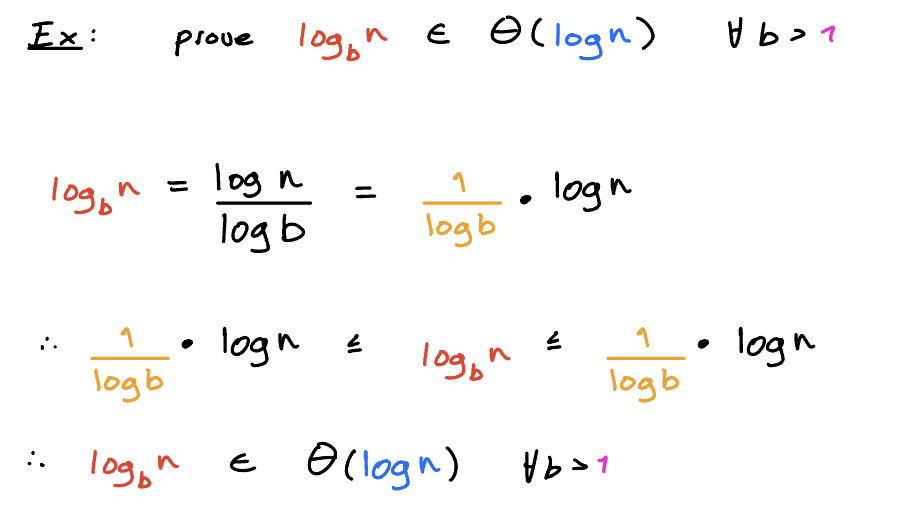 Ex: prove log_b n ∈ Θ(log n) ∀ b > 1
log_b n = \frac{log n}{log b} = \frac{1}{log b} • log n
∴ \frac{1}{log b} • log n ≤ log_b n ≤ \frac{1}{log b} • log n
∴ log_b n ∈ Θ(log n) ∀ b > 1